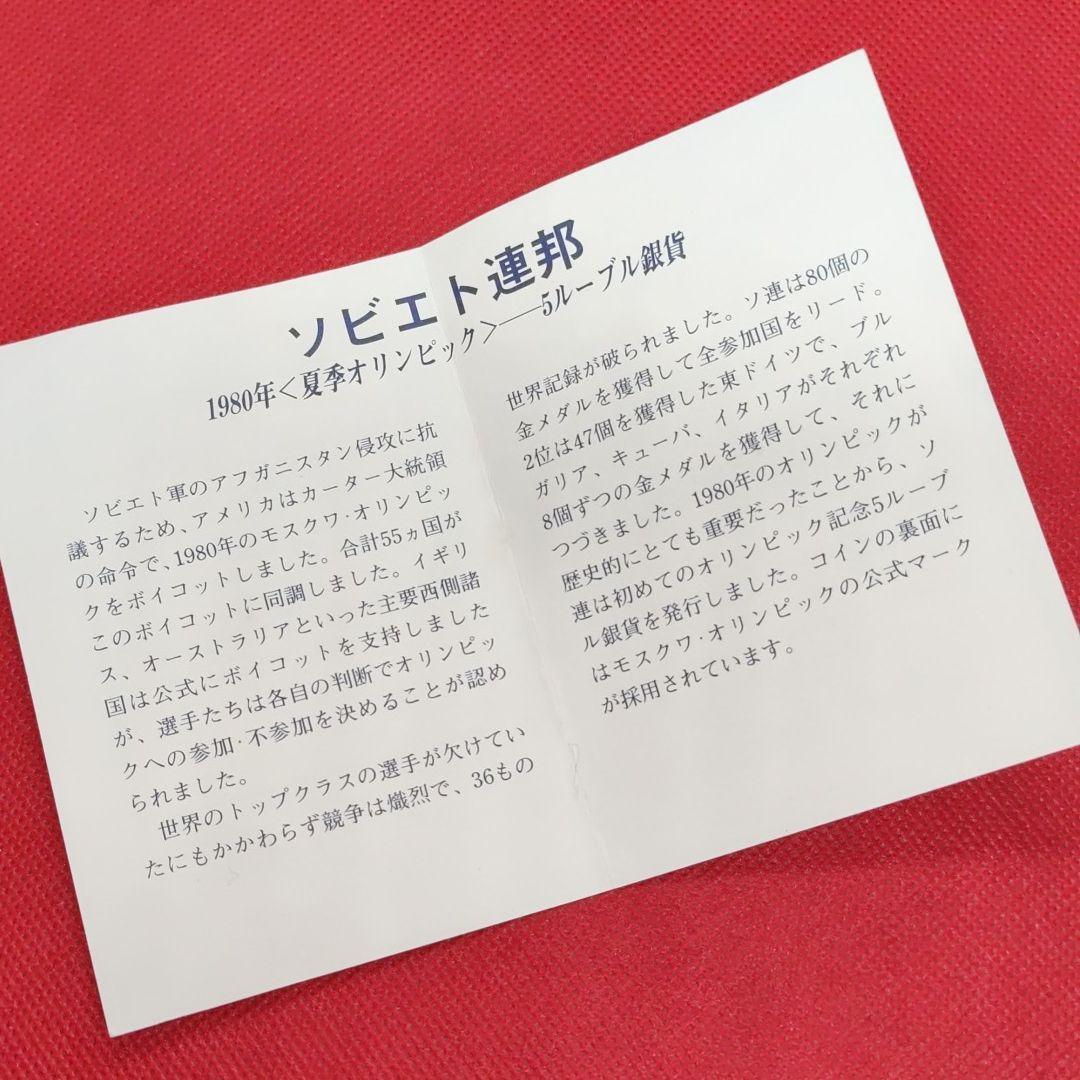 ソビエト連邦
1980年<夏季オリンピック>—5ルーブル銀貨
ソビエト軍のアフガニスタン侵攻に抗
議するため、アメリカはカーター大統領
の命令で、1980年のモスクワ・オリンピッ
クをボイコットしました。合計55ヵ国が
このボイコットに同調しました。イギリ
ス、オーストラリアといった主要西側諸
国は公式にボイコットを支持しました
が、選手たちは各自の判断でオリンピッ
クへの参加・不参加を決めることが認め
られました。
世界のトップクラスの選手が欠けてい
たにもかかわらず競争は熾烈で、36もの
世界記録が破られました。ソ連は80個の
金メダルを獲得して全参加国をリード。
2位は47個を獲得した東ドイツで、ブル
ガリア、キューバ、イタリアがそれぞれ
8個ずつの金メダルを獲得して、それに
つづきました。1980年のオリンピックが
歴史的にとても重要だったことから、ソ
連は初めてのオリンピック記念5ルーブ
ル銀貨を発行しました。コインの裏面に
はモスクワ・オリンピックの公式マーク
が採用されています。